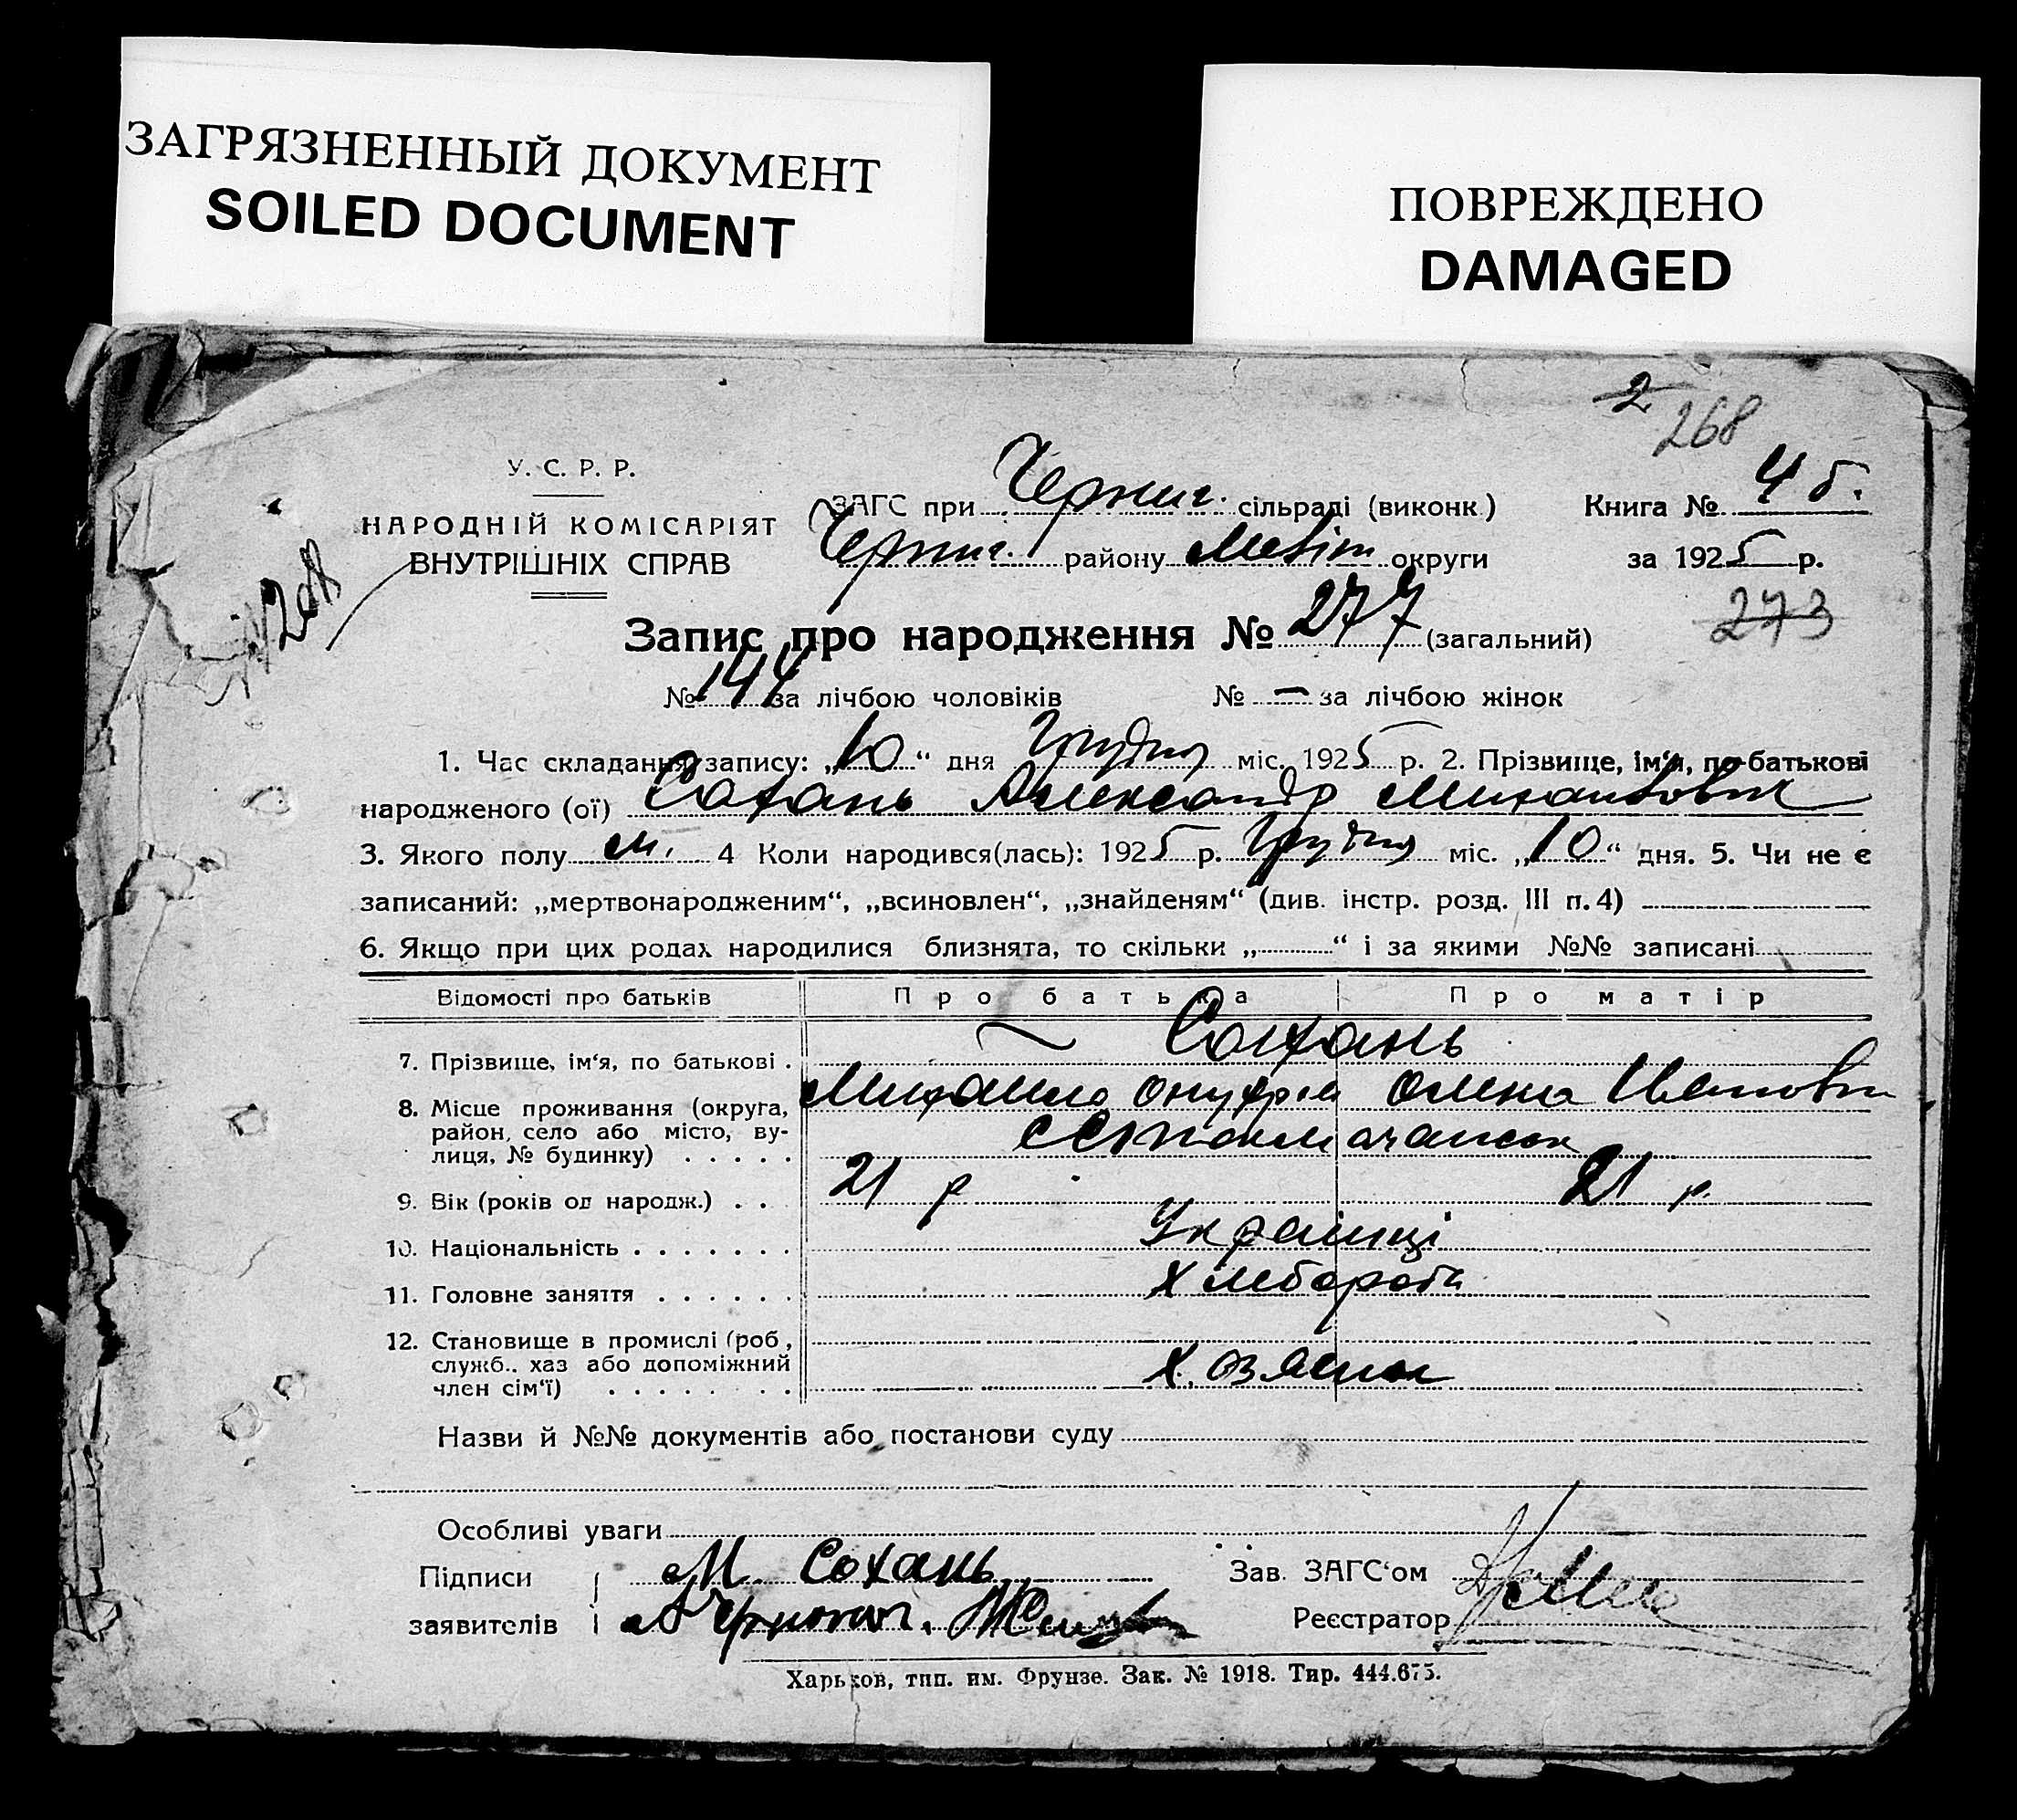 ЗАГРЯЗНЕННЫЙ ДОКУМЕНТ
SOILED DOCUMENT
ПОВРЕЖДЕНО
DAMAGED
2
268
У. С. Р. Р.
НАРОДНІЙ КОМІСАРІЯТ
ВНУТРІШНІХ СПРАВ
ЗАГС при Черниг. сільраді (виконк.) Книга № 4 б.
Черниг. району Меліт округи за 1925 р.
273
Запис про народження № 277 (загальний)
№ 144 за лічбою чоловіків № — за лічбою жінок
1. Час складання запису: „10“ дня Грудня міс. 1925 р. 2. Прізвище, ім‘я, по-батькові
народженого (ої) Сохань Александр Михайлович
3. Якого полу м. 4 Коли народився(лась): 1925 р. Грудня міс. „10“ дня. 5. Чи не є
записаний: „мертвонародженим“, „всиновлен“, „знайденям“ (див. інстр. розд. III п. 4)
6. Якщо при цих родах народилися близнята, то скільки „ “ і за якими №№ записані
Відомості про батьків Про батька Про матір
7. Прізвище, ім‘я, по батькові . Сохань
Михаило Онуфрій Олена Иванов
8. Місце проживання (округа,
район, село або місто, ву-
лиця, № будинку) . . . . .
9. Вік (років од народж.) . . 21 р 21 р.
10. Національність . . . . . . . Українці
11. Головне заняття . . . . . . Хлебороби
12. Становище в промислі (роб.,
служб., хаз або допоміжний
член сім‘ї) . . . . . . . . Хозяева
Назви й №№ документів або постанови суду
Особливі уваги
Підписи М Сохань Зав. ЗАГС‘ом
заявителів Реєстратор
Харьков, тип. им. Фрунзе. Зак. № 1918. Тир. 444.675.